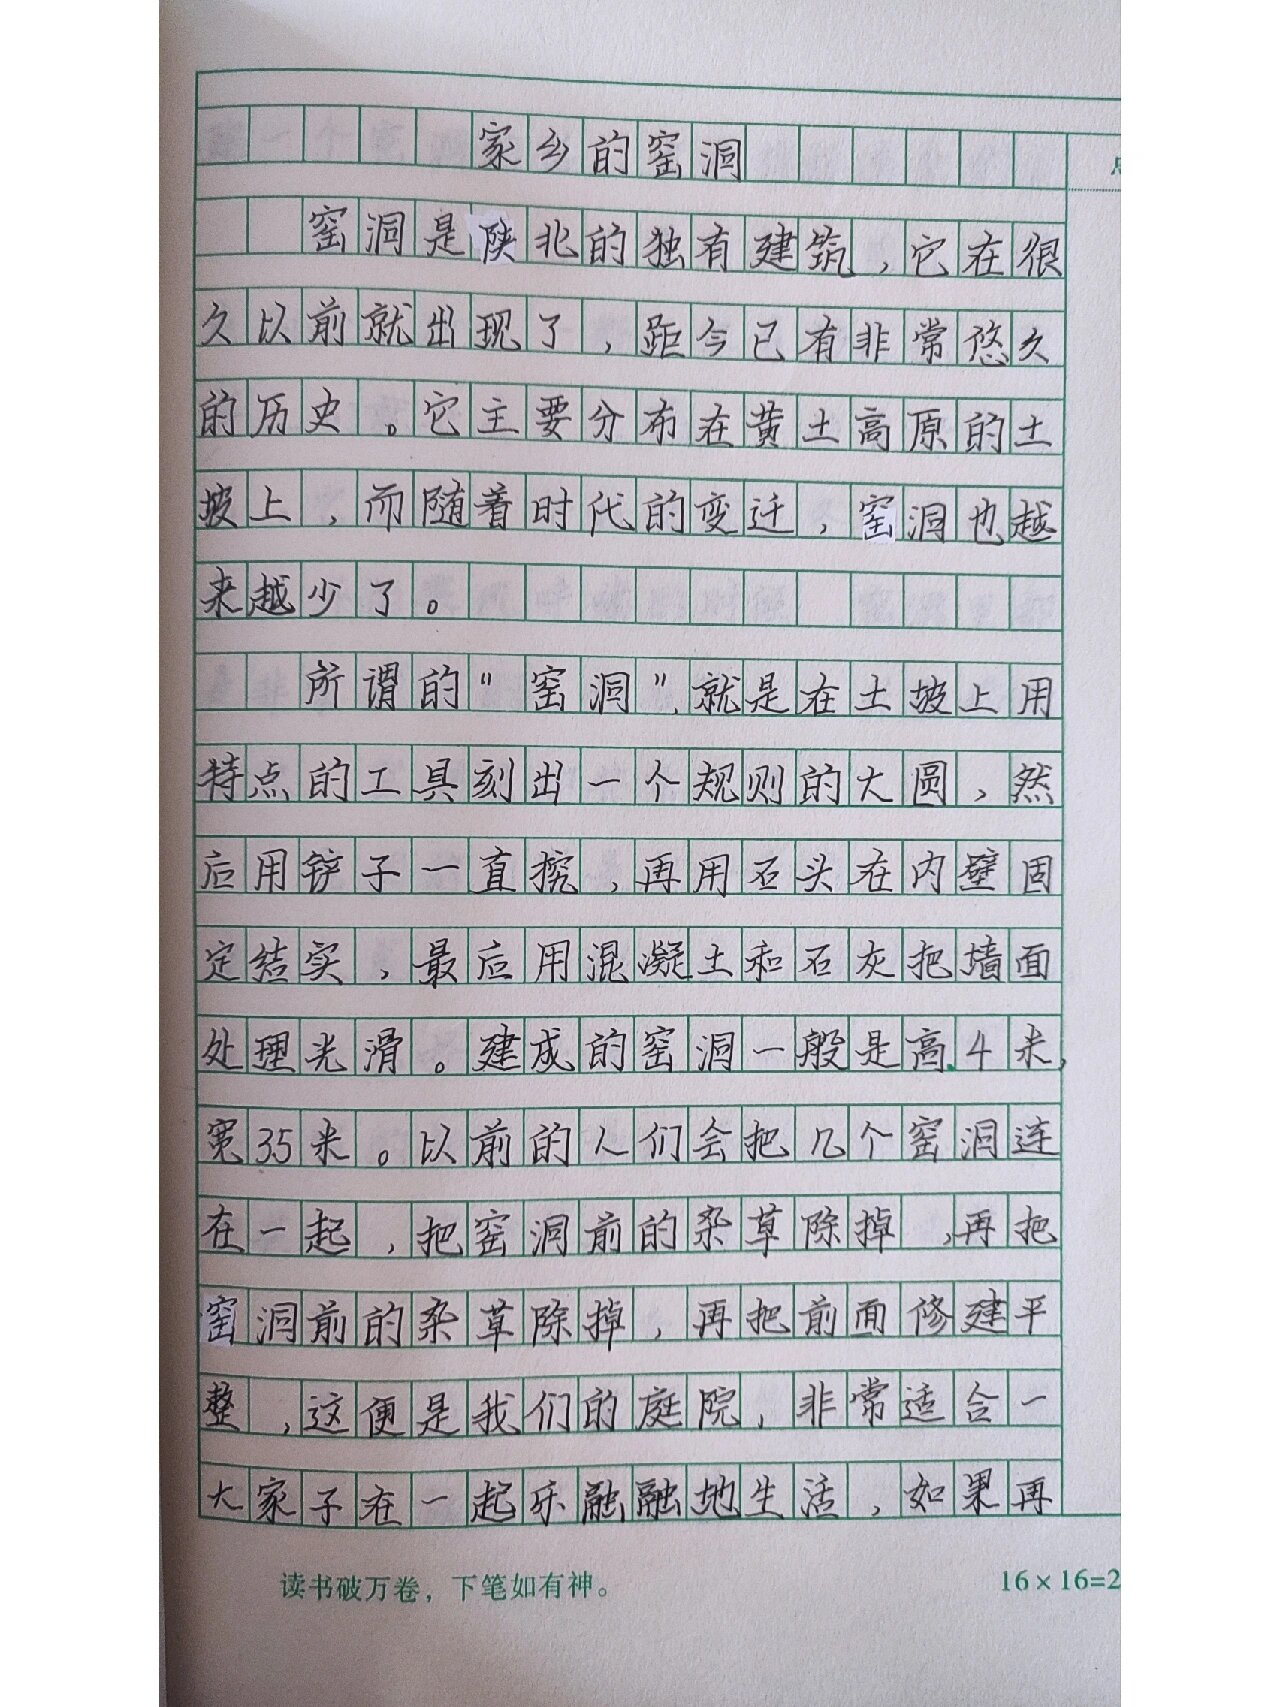 家乡的窑洞
窑洞是陕北的独有建筑，它在很
久以前就出现了，距今已有非常悠久
的历史。它主要分布在黄土高原的土
坡上，而随着时代的变迁，窑洞也越
来越少了。
所谓的“窑洞”，就是在土坡上用
特点的工具刻出一个规则的大圆，然
后用铲子一直挖，再用石头在内壁固
定结实，最后用混凝土和石灰把墙面
处理光滑。建成的窑洞一般是高4米，
宽35米。以前的人们会把几个窑洞连
在一起，把窑洞前的杂草除掉，再把
窑洞前的杂草除掉，再把前面修建平
整，这便是我们的庭院，非常适合一
大家子在一起乐融融地生活，如果再
读书破万卷，下笔如有神。
16×16=2